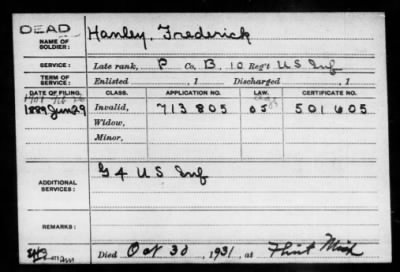 DEAD
NAME OF SOLDIER: Hanley, Frederick
SERVICE: Late rank, P Co. B, 10 Reg't U S Inf
TERM OF SERVICE: Enlisted , 1 Discharged , 1
DATE OF FILING. CLASS. APPLICATION NO. LAW. CERTIFICATE NO.
1889 Jun 29 Invalid, 713805 05 501605
Widow,
Minor,
ADDITIONAL SERVICES: G 4 U S Inf
REMARKS:
Died Oct 30, 1931, at Flint Mich